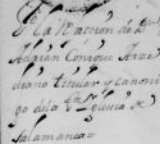 de la Racçion de Dⁿ
Adrian Conique Arze
diano titular y canoni
go dela sᵗᵃ Iglesia de
salamanca =